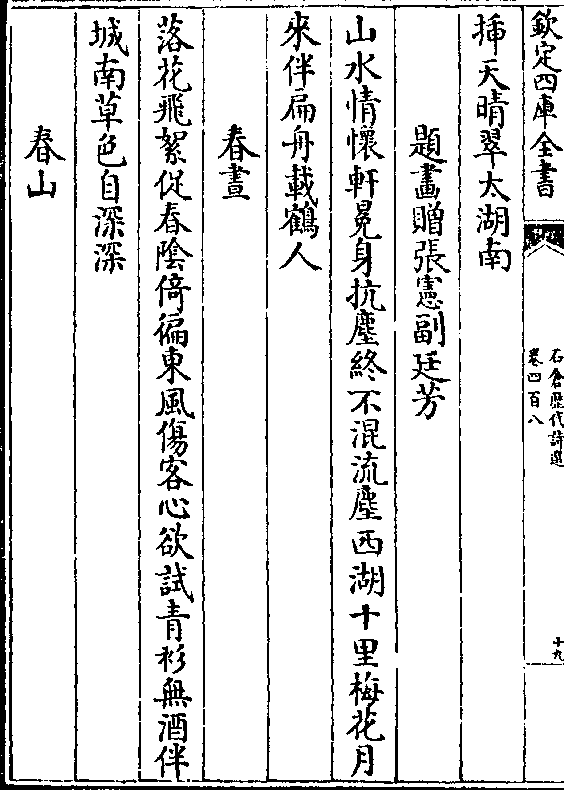 欽定四庫全書
石倉歷代詩選
卷四百八
十九
揷天晴翠太湖南
題畫贈張憲副廷芳
山水情懷軒冕身抗塵終不混流塵西湖十里梅花月
來伴扁舟載鶴人
春晝
落花飛絮促春陰倚徧東風傷客心欲試青衫無酒伴
城南草色自深深
春山